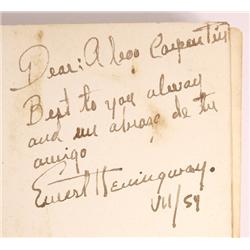 Dear: Alejo Carpentier
Best to you alway
and un abrazo de tu
amigo
Ernest Hemingway.
VII/59